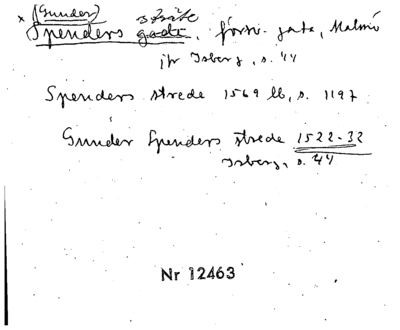 × (Gunder) stræte
Spenders gade, förr. gata, Malmö
jfr Isberg, s. 44
Spenders strede 1569 lb, s. 1197
Gunder Spenders strede 1522-32
Isberg, s. 44
Nr 12463